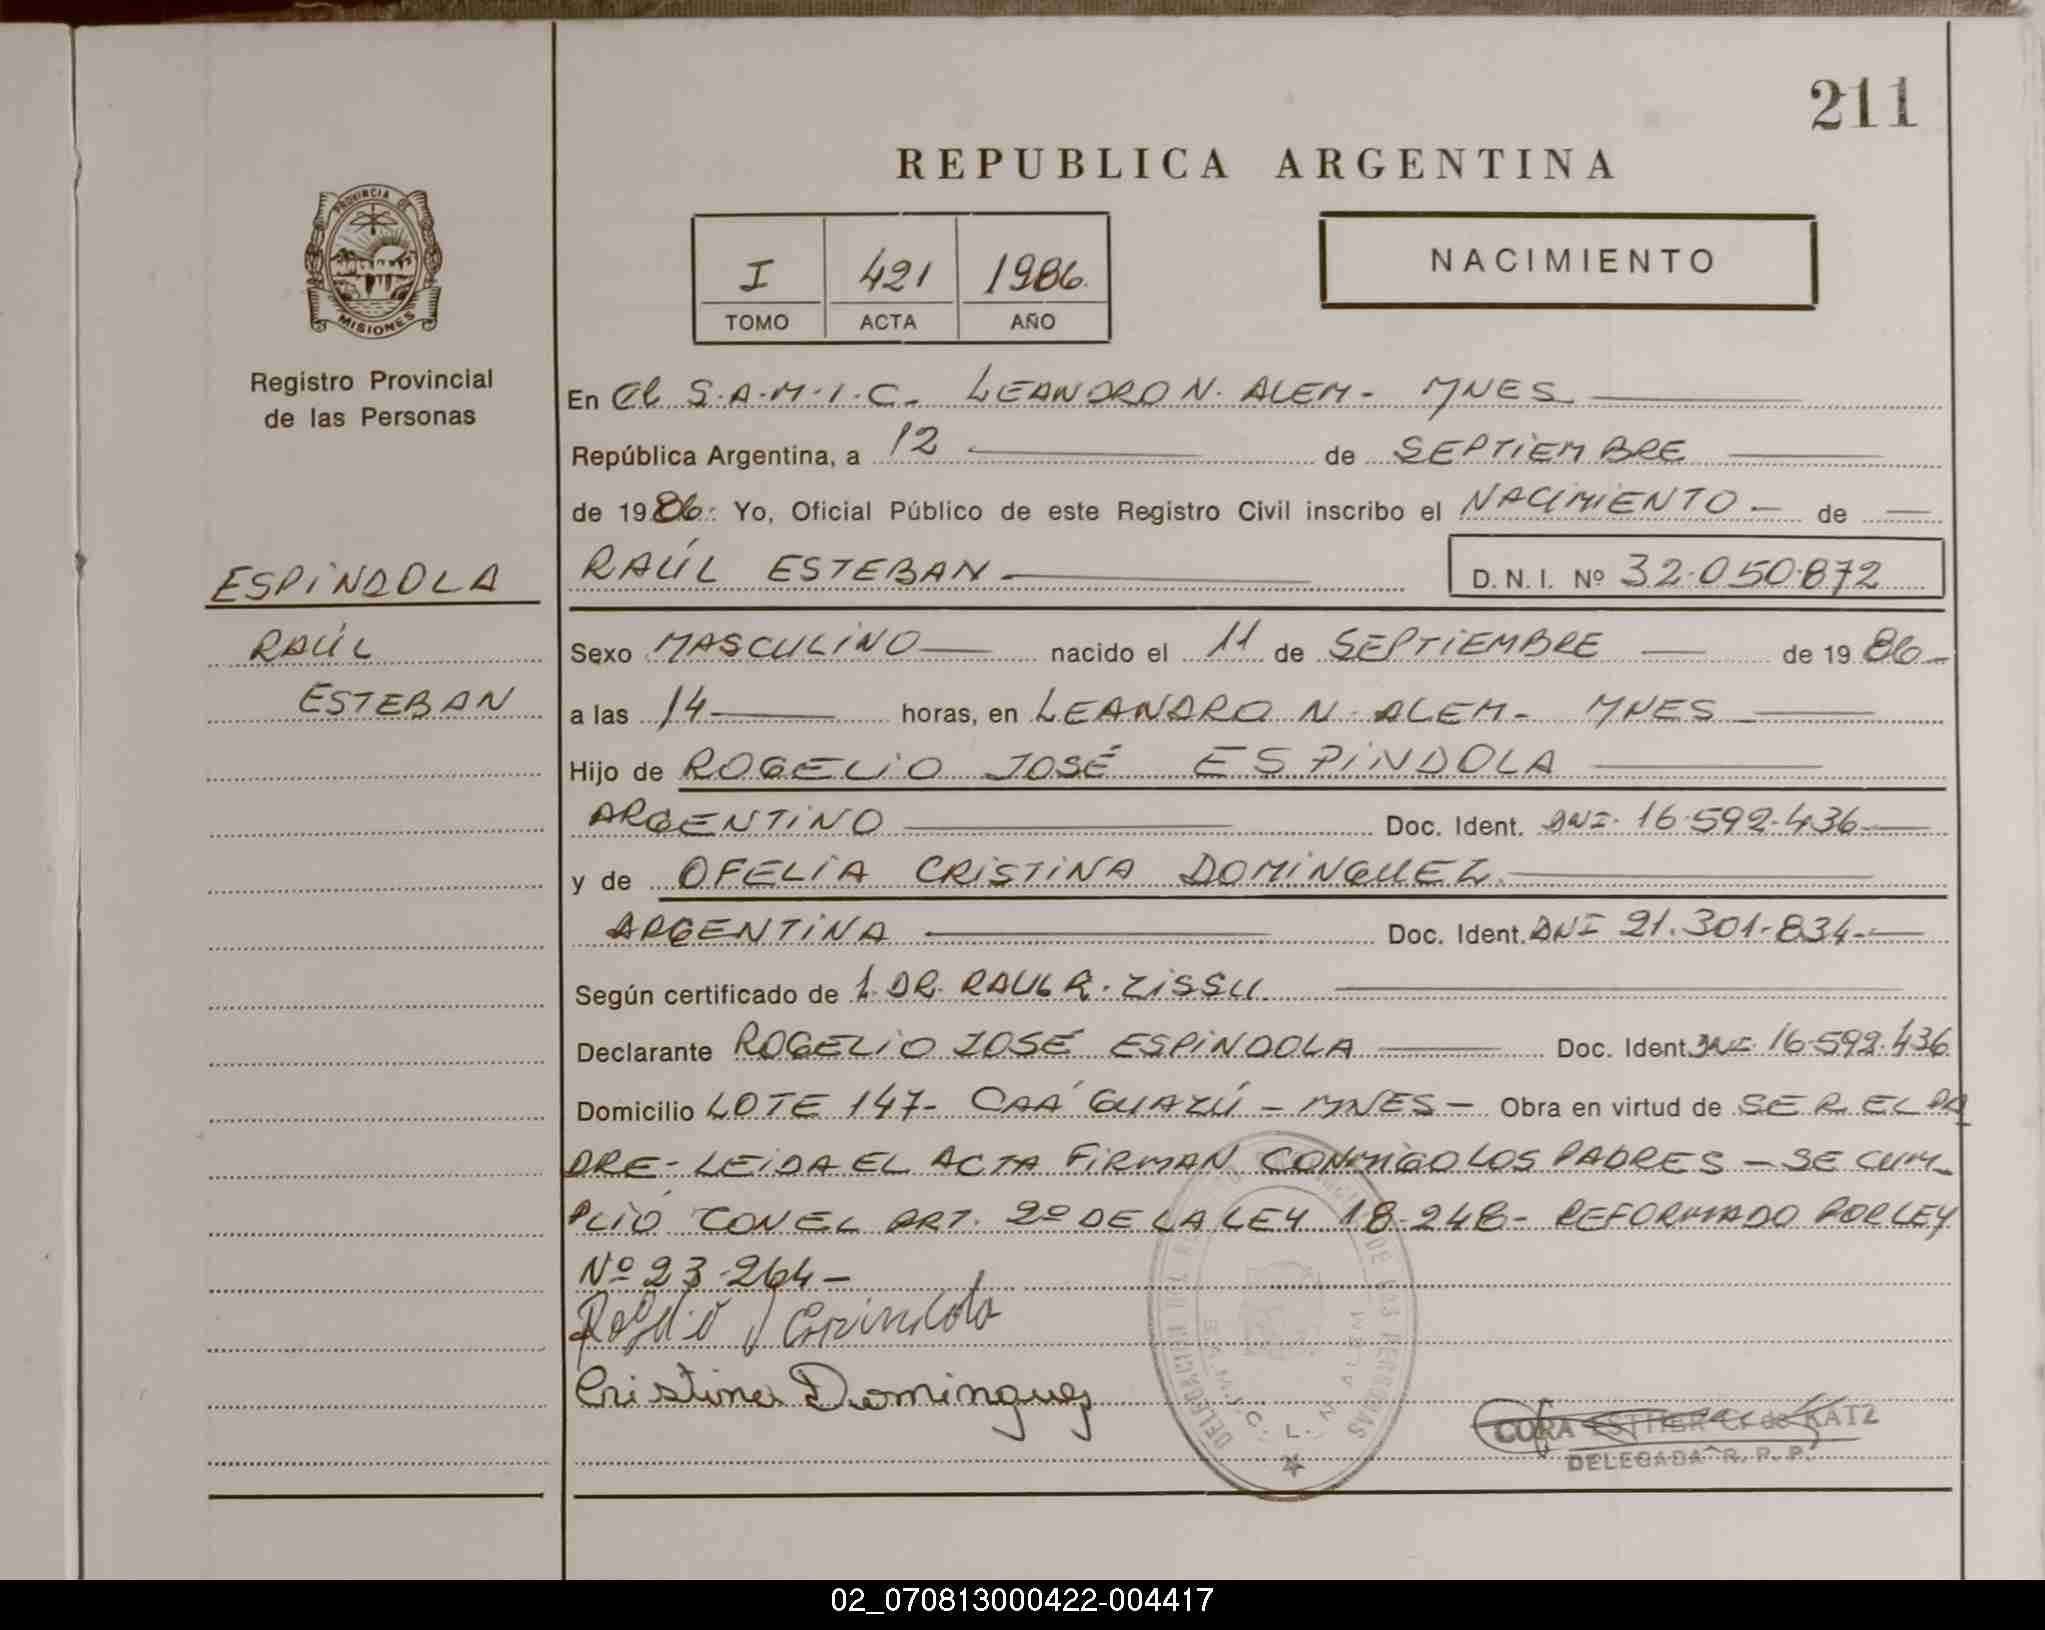 211
REPUBLICA ARGENTINA
PROVINCIA DE
MISIONES
I 421 1986
TOMO ACTA AÑO
NACIMIENTO
Registro Provincial
de las Personas
En El S.A.M.I.C. LEANDRO N. ALEM - MNES
República Argentina, a 12 de SEPTIEMBRE
de 1986. Yo, Oficial Público de este Registro Civil inscribo el NACIMIENTO - de
RAÚL ESTEBAN D.N.I. Nº 32.050.872
ESPINDOLA
RAÚL
ESTEBAN
Sexo MASCULINO nacido el 11 de SEPTIEMBRE de 1986-
a las 14 horas, en LEANDRO N. ALEM - MNES
Hijo de ROGELIO JOSÉ ESPINDOLA
ARGENTINO Doc. Ident. DNI. 16.592.436
y de OFELIA CRISTINA DOMINGUEZ
ARGENTINA Doc. Ident. DNI 21.301.834
Según certificado de L DR. RAUL R. ZISSU
Declarante ROGELIO JOSÉ ESPINDOLA Doc. Ident. DNI. 16.592.436
Domicilio LOTE 147- CAÁ GUAZÚ - MNES - Obra en virtud de SER EL PA
DRE - LEIDA EL ACTA FIRMAN CONMIGO LOS PADRES - SE CUM-
PLIÓ CON EL ART. 2º DE LA LEY 18.248 - REFORMADO POR LEY
Nº 23.264 -
Rogelio J Espindola
Cristina Dominguez
DELEGACION DEL DE LAS PERSONAS
S.A.M.I.C. L. N. ALEM
CORA ESTHER C. de KATZ
DELEGADA R. P. P.
02_070813000422-004417